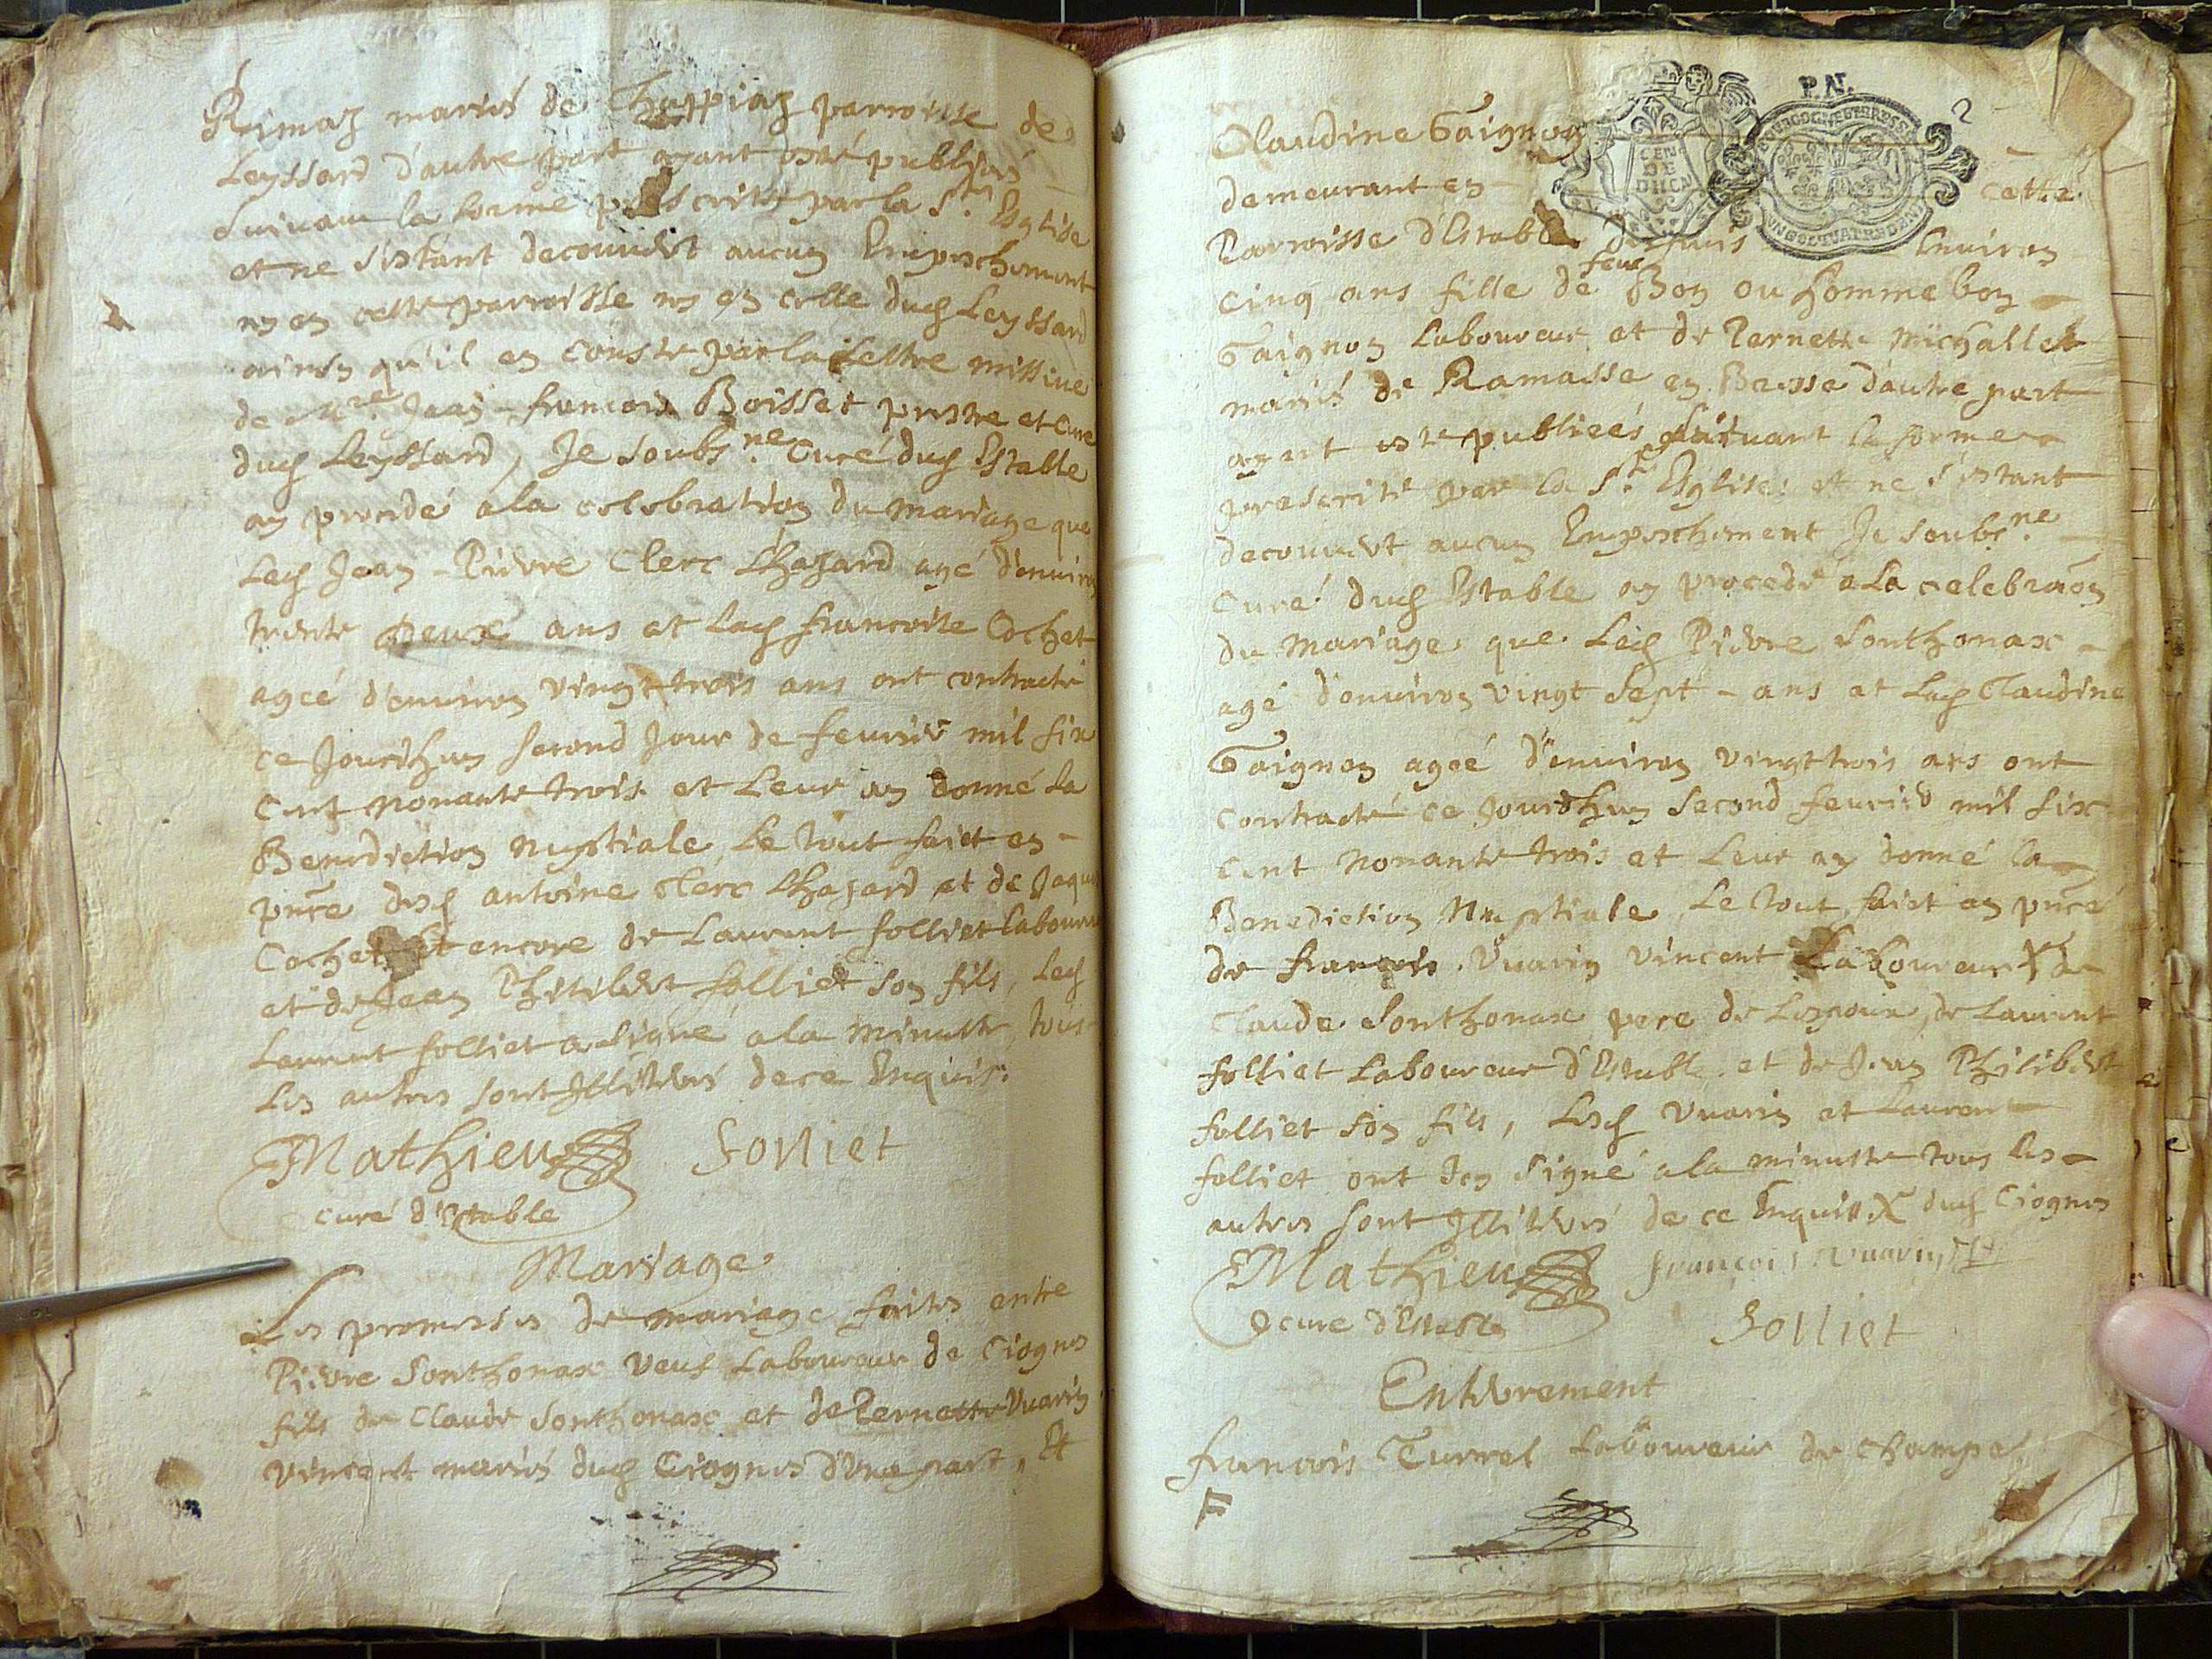 Rimaz mariés de Chappiaz parroisse de
Leyssard d'autre part ayant esté publiées
suivant la forme prescritte par la Ste Esglise
et ne s'estant decouvert aucun Empeschement
ny en cette parroisse ny en celle dud Leyssard
ainsy qu'il en conste par la lettre missive
de Mre Jean-francois Boisset prestre et Curé
dud Leyssard, Je soubsne Curé dud Estable
ay procedé a la celebration du mariage que
Led Jean-Pierre Clerc Lhazard agé d'environ
trente Deux ans et Lad francoise Cochet
ageé d'environ vingt trois ans ont contracté
ce Jourdhuy second Jour de fevrier mil six
Cent nonante trois et Leur ay donné la
Benediction nuptiale Le tout faict en
pnce desd antoine Clerc Lhazard et de Jaque
Cochet Et encore de Laurent folliet laboureur
et de Jean Philibert folliet son fils, Led
Laurent folliet a signé a la minutte, tous
Les autres sont Illitérés de ce Enquis.
Mathieu folliet
curé d'Estable
Mariage
Les promesses de mariage faites entre
Pierre Sonthonax veuf Laboureur de Ciognes
fils de Claude Sonthonax et de Pernette Vuarin
vincent mariés dud Ciognes d'une part, Et
P.N.
2
Claudine Gaignon
demeurant en cette
Parroisse d'Estable Depuis Environ
feu
cinq ans fille de Bon ou hommebon
Gaignon Laboureur et de Pernette Michallet
mariés de Ramasse en Bresse d'autre part
ayant esté publieés suivant la forme
prescrite par la Ste Esglise et ne s'estant
decouvert aucun Empeschement Je soubsne
Curé dud Estable ay procedé a La celebraon
du Mariage que Led Pierre Sonthonax
agé d'environ vingt sept ans et Lad Claudine
Gaignon ageé d'environ vingt trois ans ont
contracté ce Jourdhuy second fevrier mil six
Cent Nonante trois et Leur ay donné la
Benediction Nuptiale Le tout faict en pnce
de francois Vuarin vincent Laboureur X de
Claude Sonthonax pere de Lespoux, de Laurent
folliet Laboureur d'Estable et de Jean Philibert
folliet son fils, Lesd Vuarin et Laurent
folliet ont signé a la minutte tous les
autres sont Illitérés de ce Enquis. X dud Ciognes
Mathieu françois Vuarin
curé d'Estable folliet
Enterrement
francois Turrel Laboureur de Champel
F